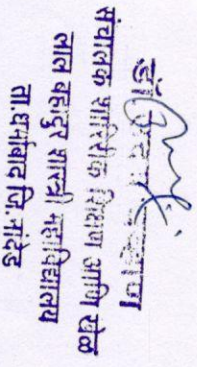 डॉ
संचालक शारिरीक शिक्षण आणि खेळ
लाल बहादुर शास्त्री महाविद्यालय
ता.धर्माबाद जि.नांदेड